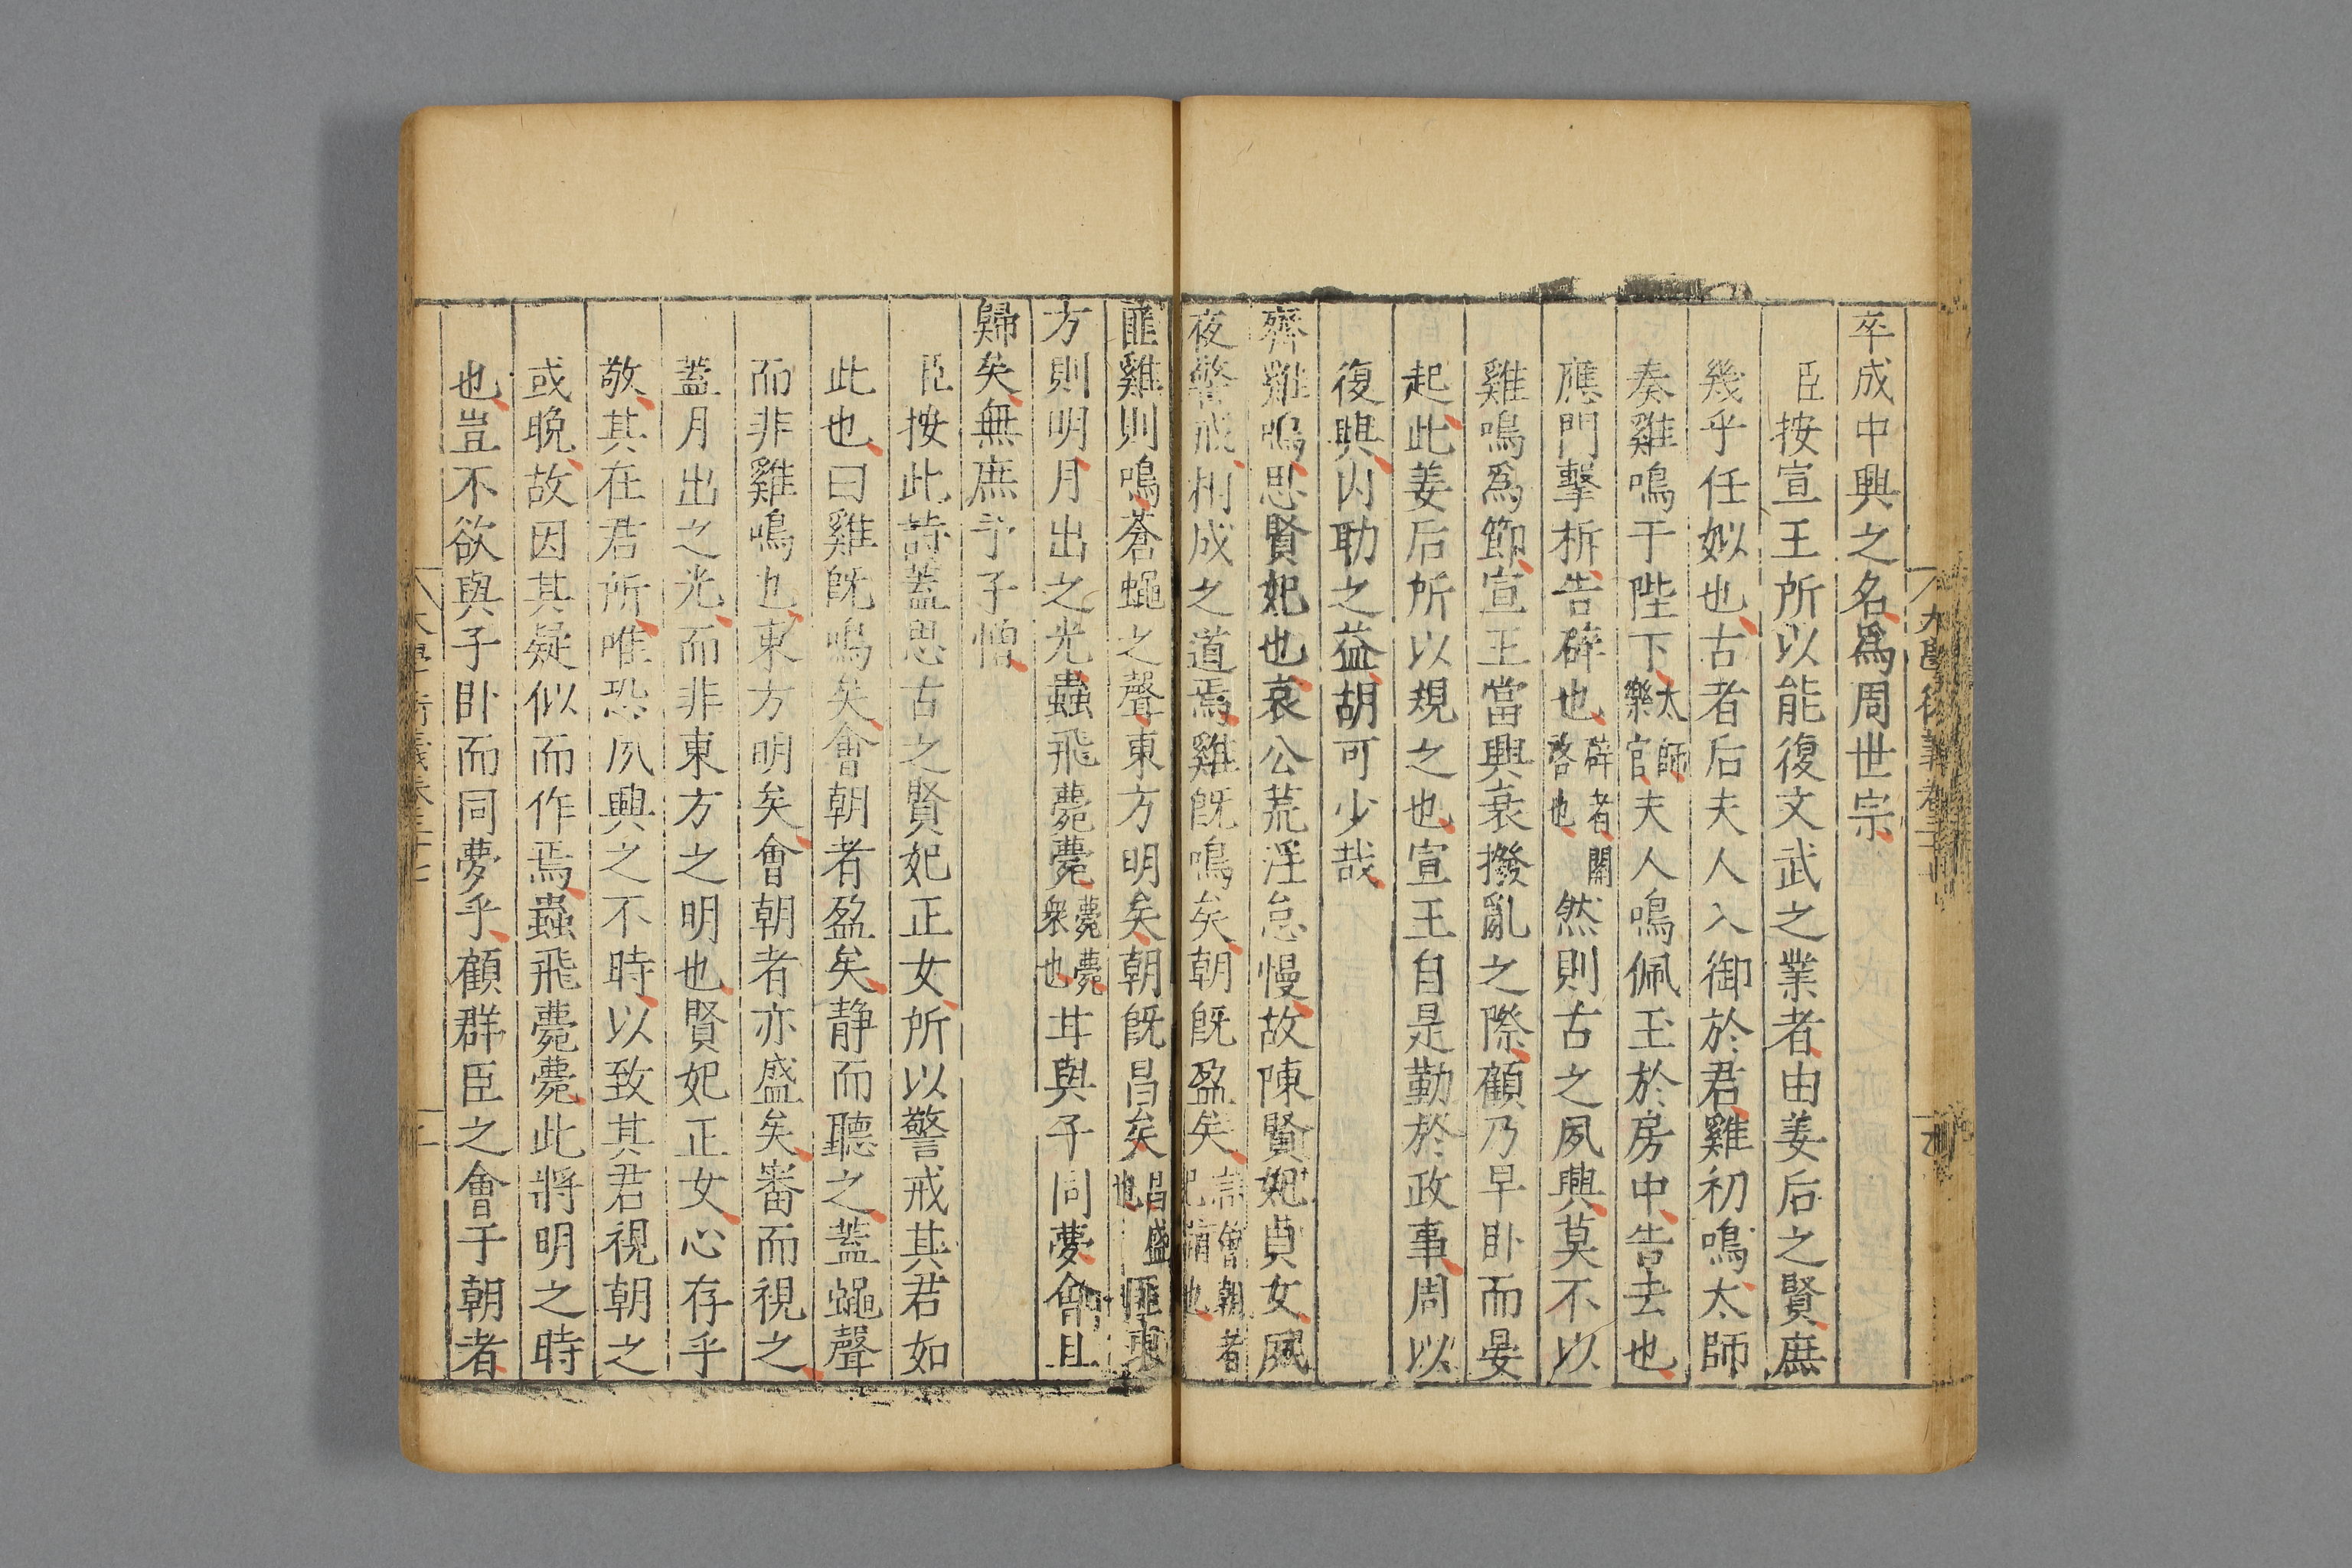 卒成中興之名爲周世宗
臣按宣王所以能復文武之業者由姜后之賢庶
幾乎任姒也古者后夫人入御於君雞初鳴太師
奏雞鳴于陛下太師樂官夫人鳴佩玉於房中告去也
應門擊柝告辟也辟者關啓也然則古之夙興莫不以
雞鳴爲節宣王當興衰撥亂之際顧乃早卧而晏
起此姜后所以規之也宣王自是勤於政事周以
復興内助之益胡可少哉
齊雞鳴思賢妃也哀公荒淫怠慢故陳賢妃貞女夙
夜警戒相成之道焉雞旣鳴矣朝旣盈矣言會朝者已滿也
匪雞則鳴蒼蠅之聲東方明矣朝旣昌矣昌盛也匪東
方則明月出之光蟲飛薨薨薨薨衆也甘與子同夢會且
歸矣無庶予子憎
臣按此詩蓋思古之賢妃正女所以警戒其君如
此也曰雞旣鳴矣會朝者盈矣静而聽之蓋蠅聲
而非雞鳴也東方明矣會朝者亦盛矣審而視之
蓋月出之光而非東方之明也賢妃正女心存乎
敬其在君所唯恐夙興之不時以致其君視朝之
或晚故因其疑似而作焉蟲飛薨薨此將明之時
也豈不欲與子卧而同夢乎顧群臣之會于朝者
大學衍義卷三十七